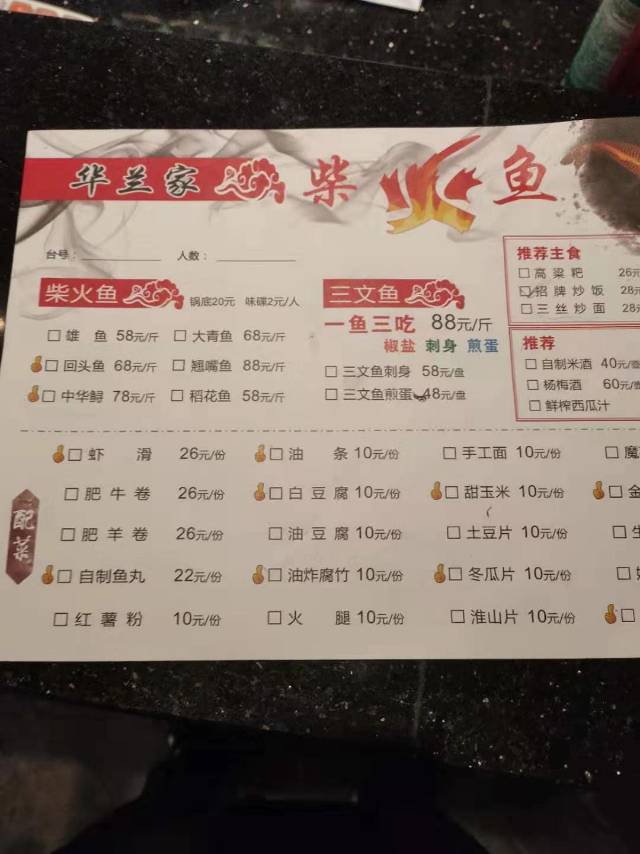 华兰家 柴火鱼
台号： 人数：
柴火鱼 锅底20元 味碟2元/人
雄 鱼 58元/斤 大青鱼 68元/斤
回头鱼 68元/斤 翘嘴鱼 88元/斤
中华鲟 78元/斤 稻花鱼 58元/斤
三文鱼
一鱼三吃 88元/斤
椒盐 刺身 煎蛋
三文鱼刺身 58元/盘
三文鱼煎蛋 48元/盘
推荐主食
高粱粑 26元
招牌炒饭 28元
三丝炒面 28元
推荐
自制米酒 40元/壶
杨梅酒 60元/壶
鲜榨西瓜汁
配菜
虾 滑 26元/份 油 条 10元/份 手工面 10元/份 魔
肥牛卷 26元/份 白豆腐 10元/份 甜玉米 10元/份 金
肥羊卷 26元/份 油豆腐 10元/份 土豆片 10元/份 生
自制鱼丸 22元/份 油炸腐竹 10元/份 冬瓜片 10元/份
红薯粉 10元/份 火 腿 10元/份 淮山片 10元/份